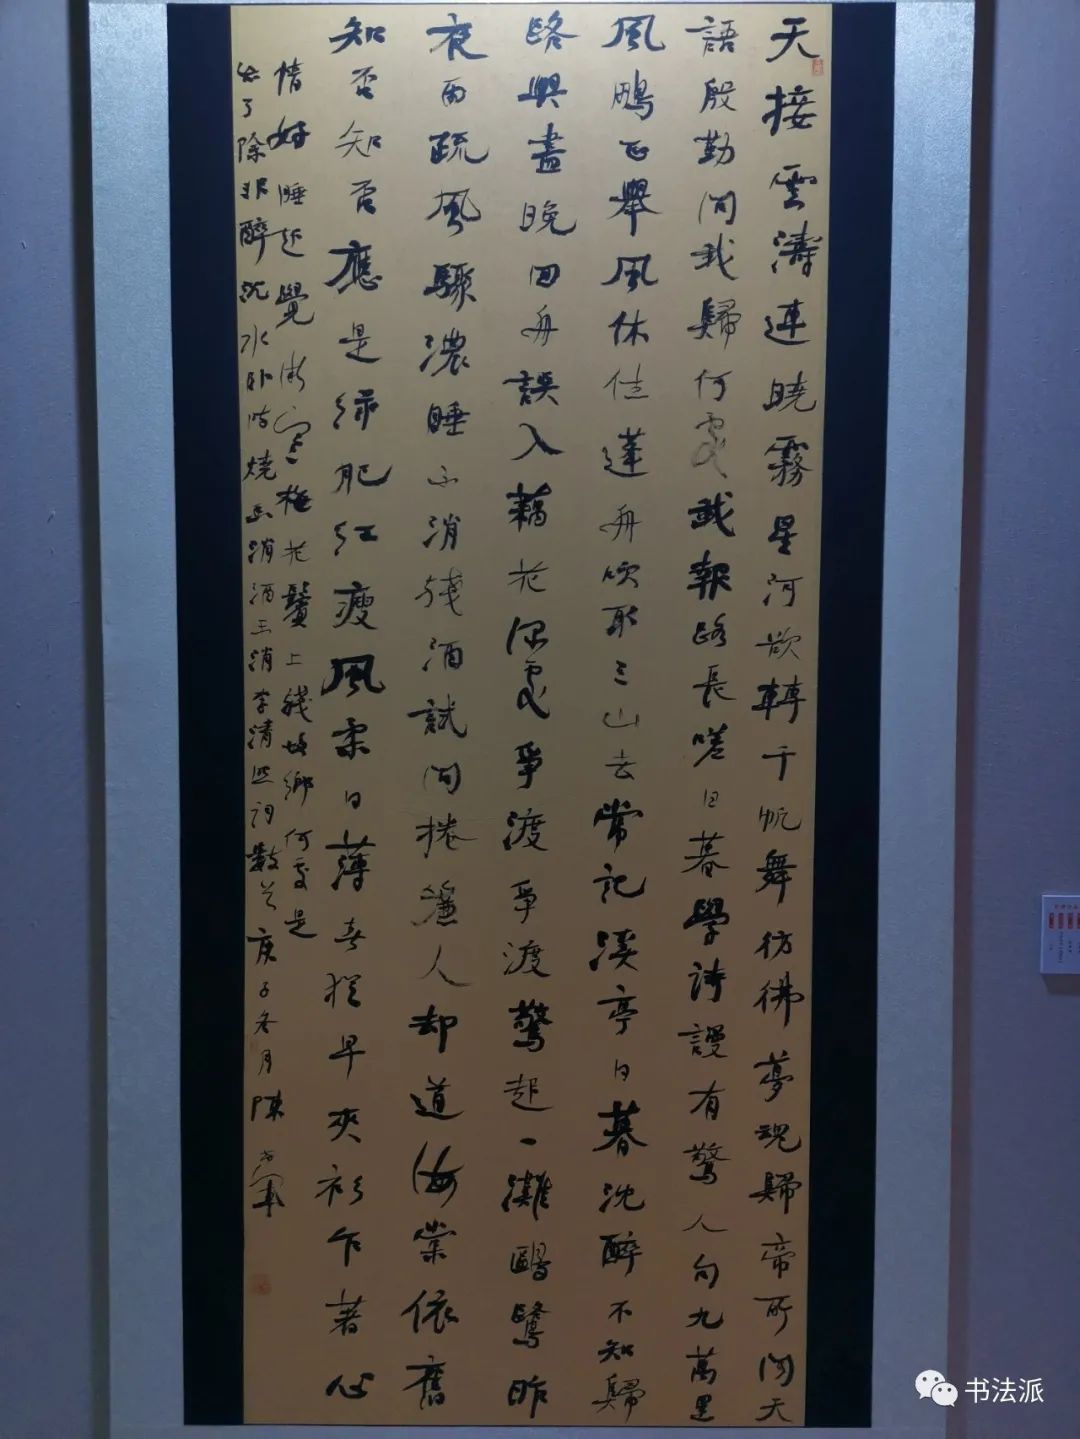 天接雲濤連曉霧星河欲轉千帆舞彷彿夢魂歸帝所聞天
語殷勤問我歸何處我報路長嗟日暮學詩謾有驚人句九萬里
風鵬正舉風休住蓬舟吹取三山去常記溪亭日暮沈醉不知歸
路興盡晚回舟誤入藕花深處爭渡爭渡驚起一灘鷗鷺昨
夜雨疏風驟濃睡不消殘酒試問捲簾人却道海棠依舊
知否知否應是綠肥紅瘦風柔日薄春猶早夾衫乍著心
情好睡起覺微寒梅花鬢上殘故鄉何處是
忘了除非醉沈水卧時燒香消酒未消李清照詞數首庚子冬月陳
书法派